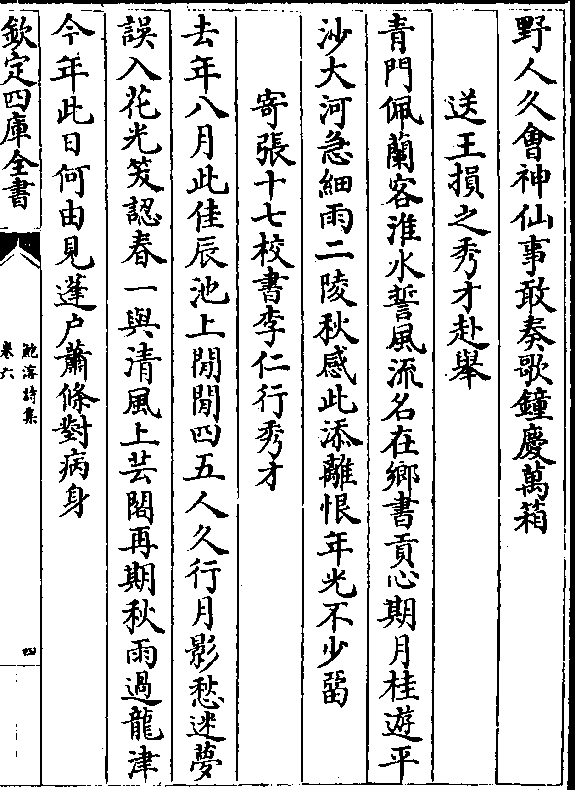 野人久會神仙事敢奏歌鐘慶萬箱
送王損之秀才赴舉
青門佩蘭客淮水誓風流名在鄉書貢心期月桂遊平
沙大河急細雨二陵秋感此添離恨年光不少留
寄張十七校書李仁行秀才
去年八月此佳辰池上閒閒四五人久行月影愁迷夢
誤入花光笑認春一與清風上芸閣再期秋雨過龍津
今年此日何由見蓬户蕭條對病身
欽定四庫全書
鮑溶詩集
卷六
四